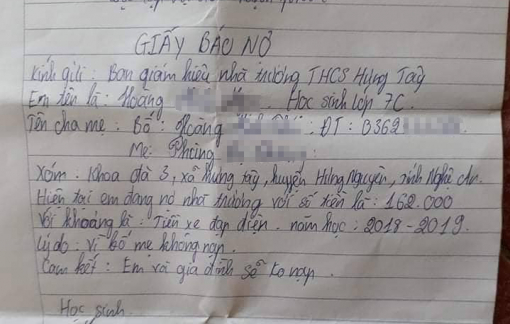 GIẤY BÁO NỢ
Kính gửi : Ban giám hiệu nhà trường THCS Hưng Tây
Em tên là : Hoàng . Học sinh lớp 7C.
Tên cha mẹ : Bố : Hoàng : ĐT : 0362
Mẹ : Phùng
Xóm : Khoa đà 3, xã hưng tây, huyện Hưng Nguyên, tỉnh Nghệ An.
Hiện tại em đang nợ nhà trường với số tiền là : 162.000
Với khoảng là : Tiền xe đạp điện . năm học : 2018 - 2019.
Lý do : Vì bố mẹ không nạp .
Cam kết : Em và gia đình sẽ ko nạp .
Học sinh